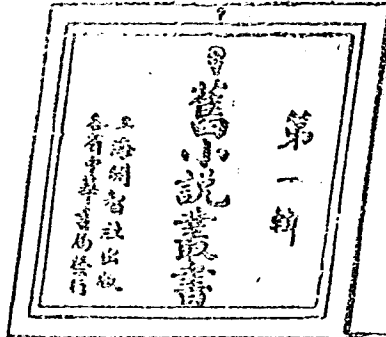 第一輯
舊小說叢書
上海開智社出版
各省中華書局發行